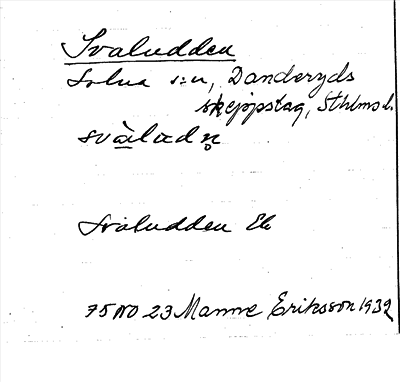 Svaludden
Solna s:n, Danderyds
skeppslag, Sthlms l.
svàladn̥
Svaludden Ek
75 NO 23 Manne Eriksson 1932